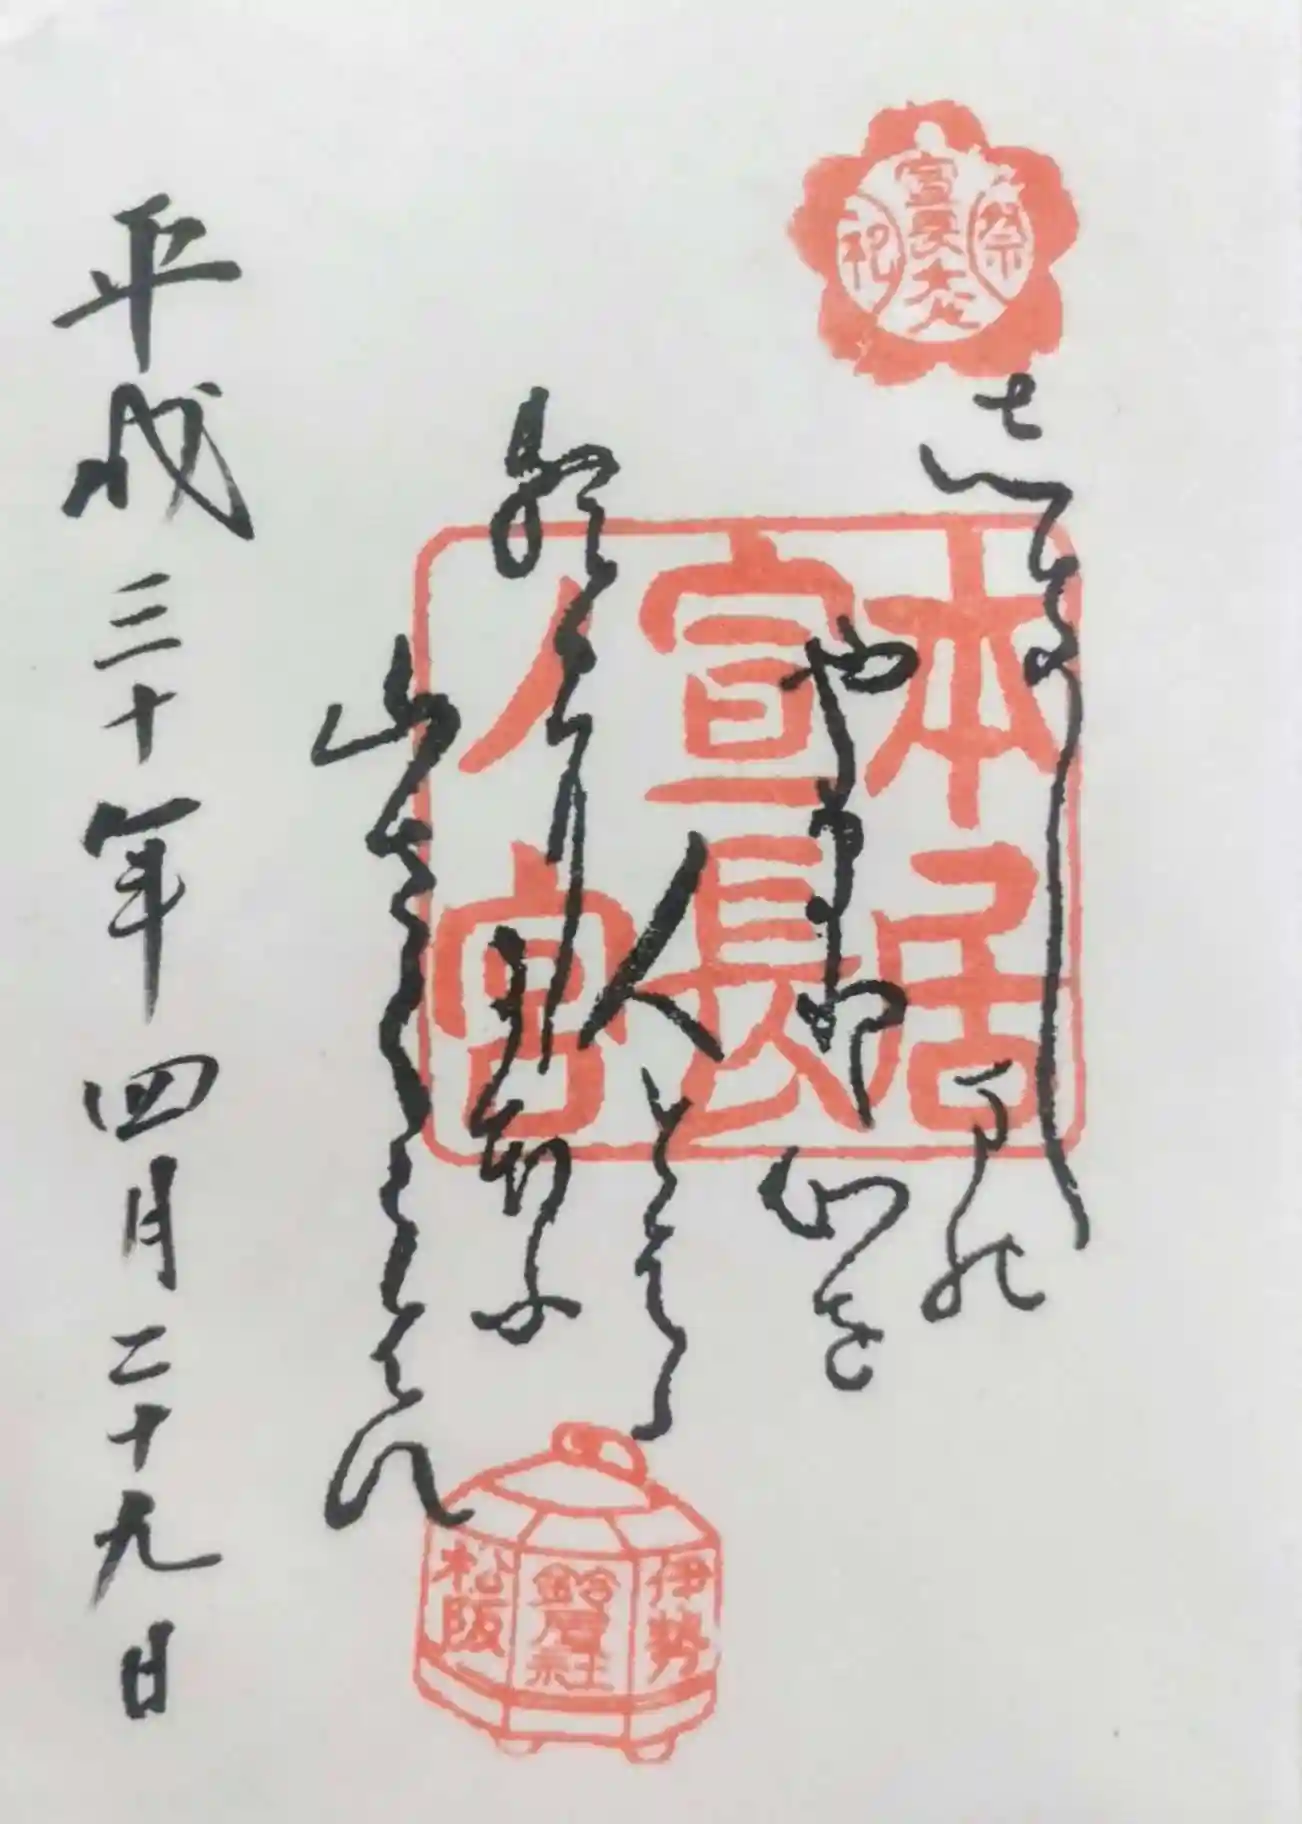 宣長大人
祭礼
しきしまの
やまとこゝろを
人とはゝ
朝日ににほふ
山さくらはな
本居
宣長
ノ宮
伊勢
鈴屋社
松阪
平成三十年四月二十九日